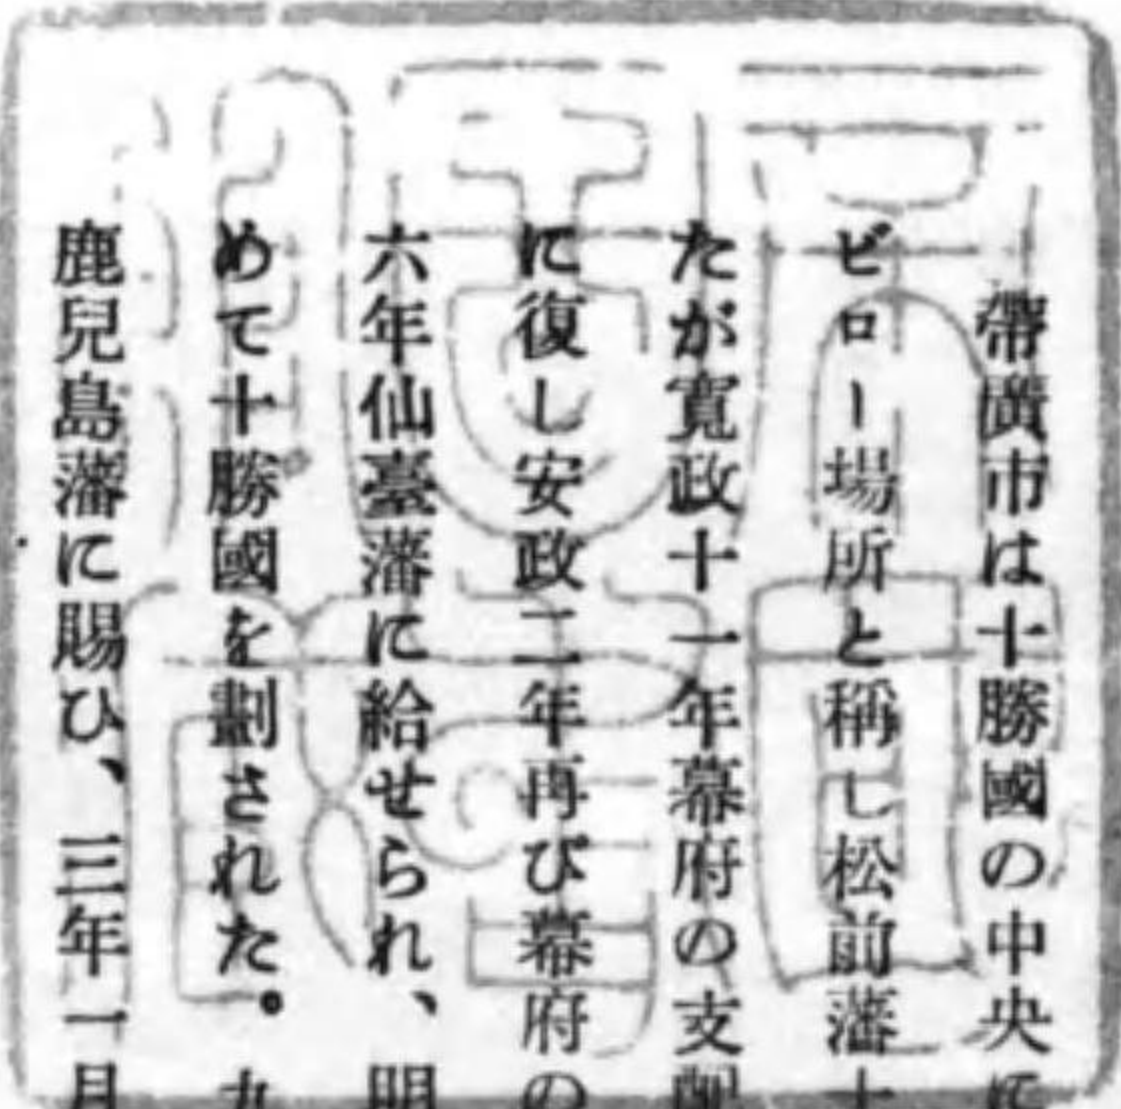 帶廣市は十勝國の中央に
ビロー場所と稱し松前藩士
たが寛政十一年幕府の支配
に復し安政二年再び幕府の
六年仙臺藩に給せられ、明
めて十勝國を劃された。九
鹿兒島藩に賜ひ、三年一月